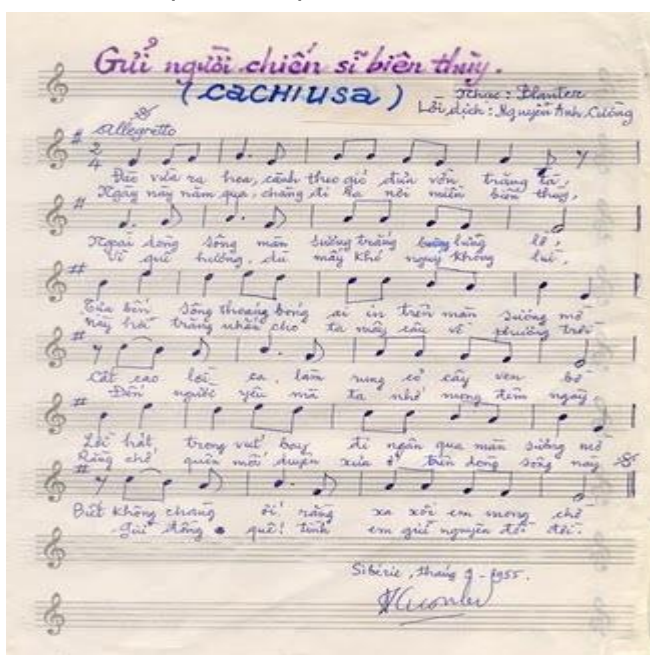 Gửi người chiến sĩ biên thùy.
(CACHIUSA)
Nhạc: Blanter
Lời dịch: Nguyễn Anh Cường
Allegretto
2
4
Đào vừa ra hoa, cành theo gió đưa vờn trăng tà,
Ngày này năm qua, chàng đi ra nơi miền biên thùy,
Ngoài dòng sông màn sương trắng buông lững lờ,
Vì quê hương, dù mấy khó nguy không lui,
bến sông thoáng bóng ai in trên màn sương mờ
này hỡi trăng nhắn cho ta mấy câu về phương trời
Cất cao lời ca, làm rung cỏ cây ven bờ
Đến người yêu mà ta nhớ mong đêm ngày
Lời hát trong vút bay đi ngân qua màn sương mờ
Rằng chớ quên mối duyên xưa ở trên dòng sông này
Biết không chàng ơi! rằng xa xôi em mong chờ
Gửi đồng quê! tình em giữ nguyên đời đời.
Sibérie, tháng 9-1955.